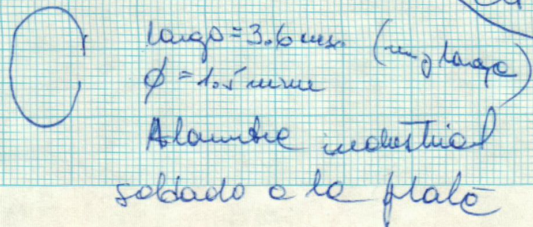 largo = 3.6 mm. (muy largo)
ϕ = 1.5 mm
Alambre industrial
soldado a la plata